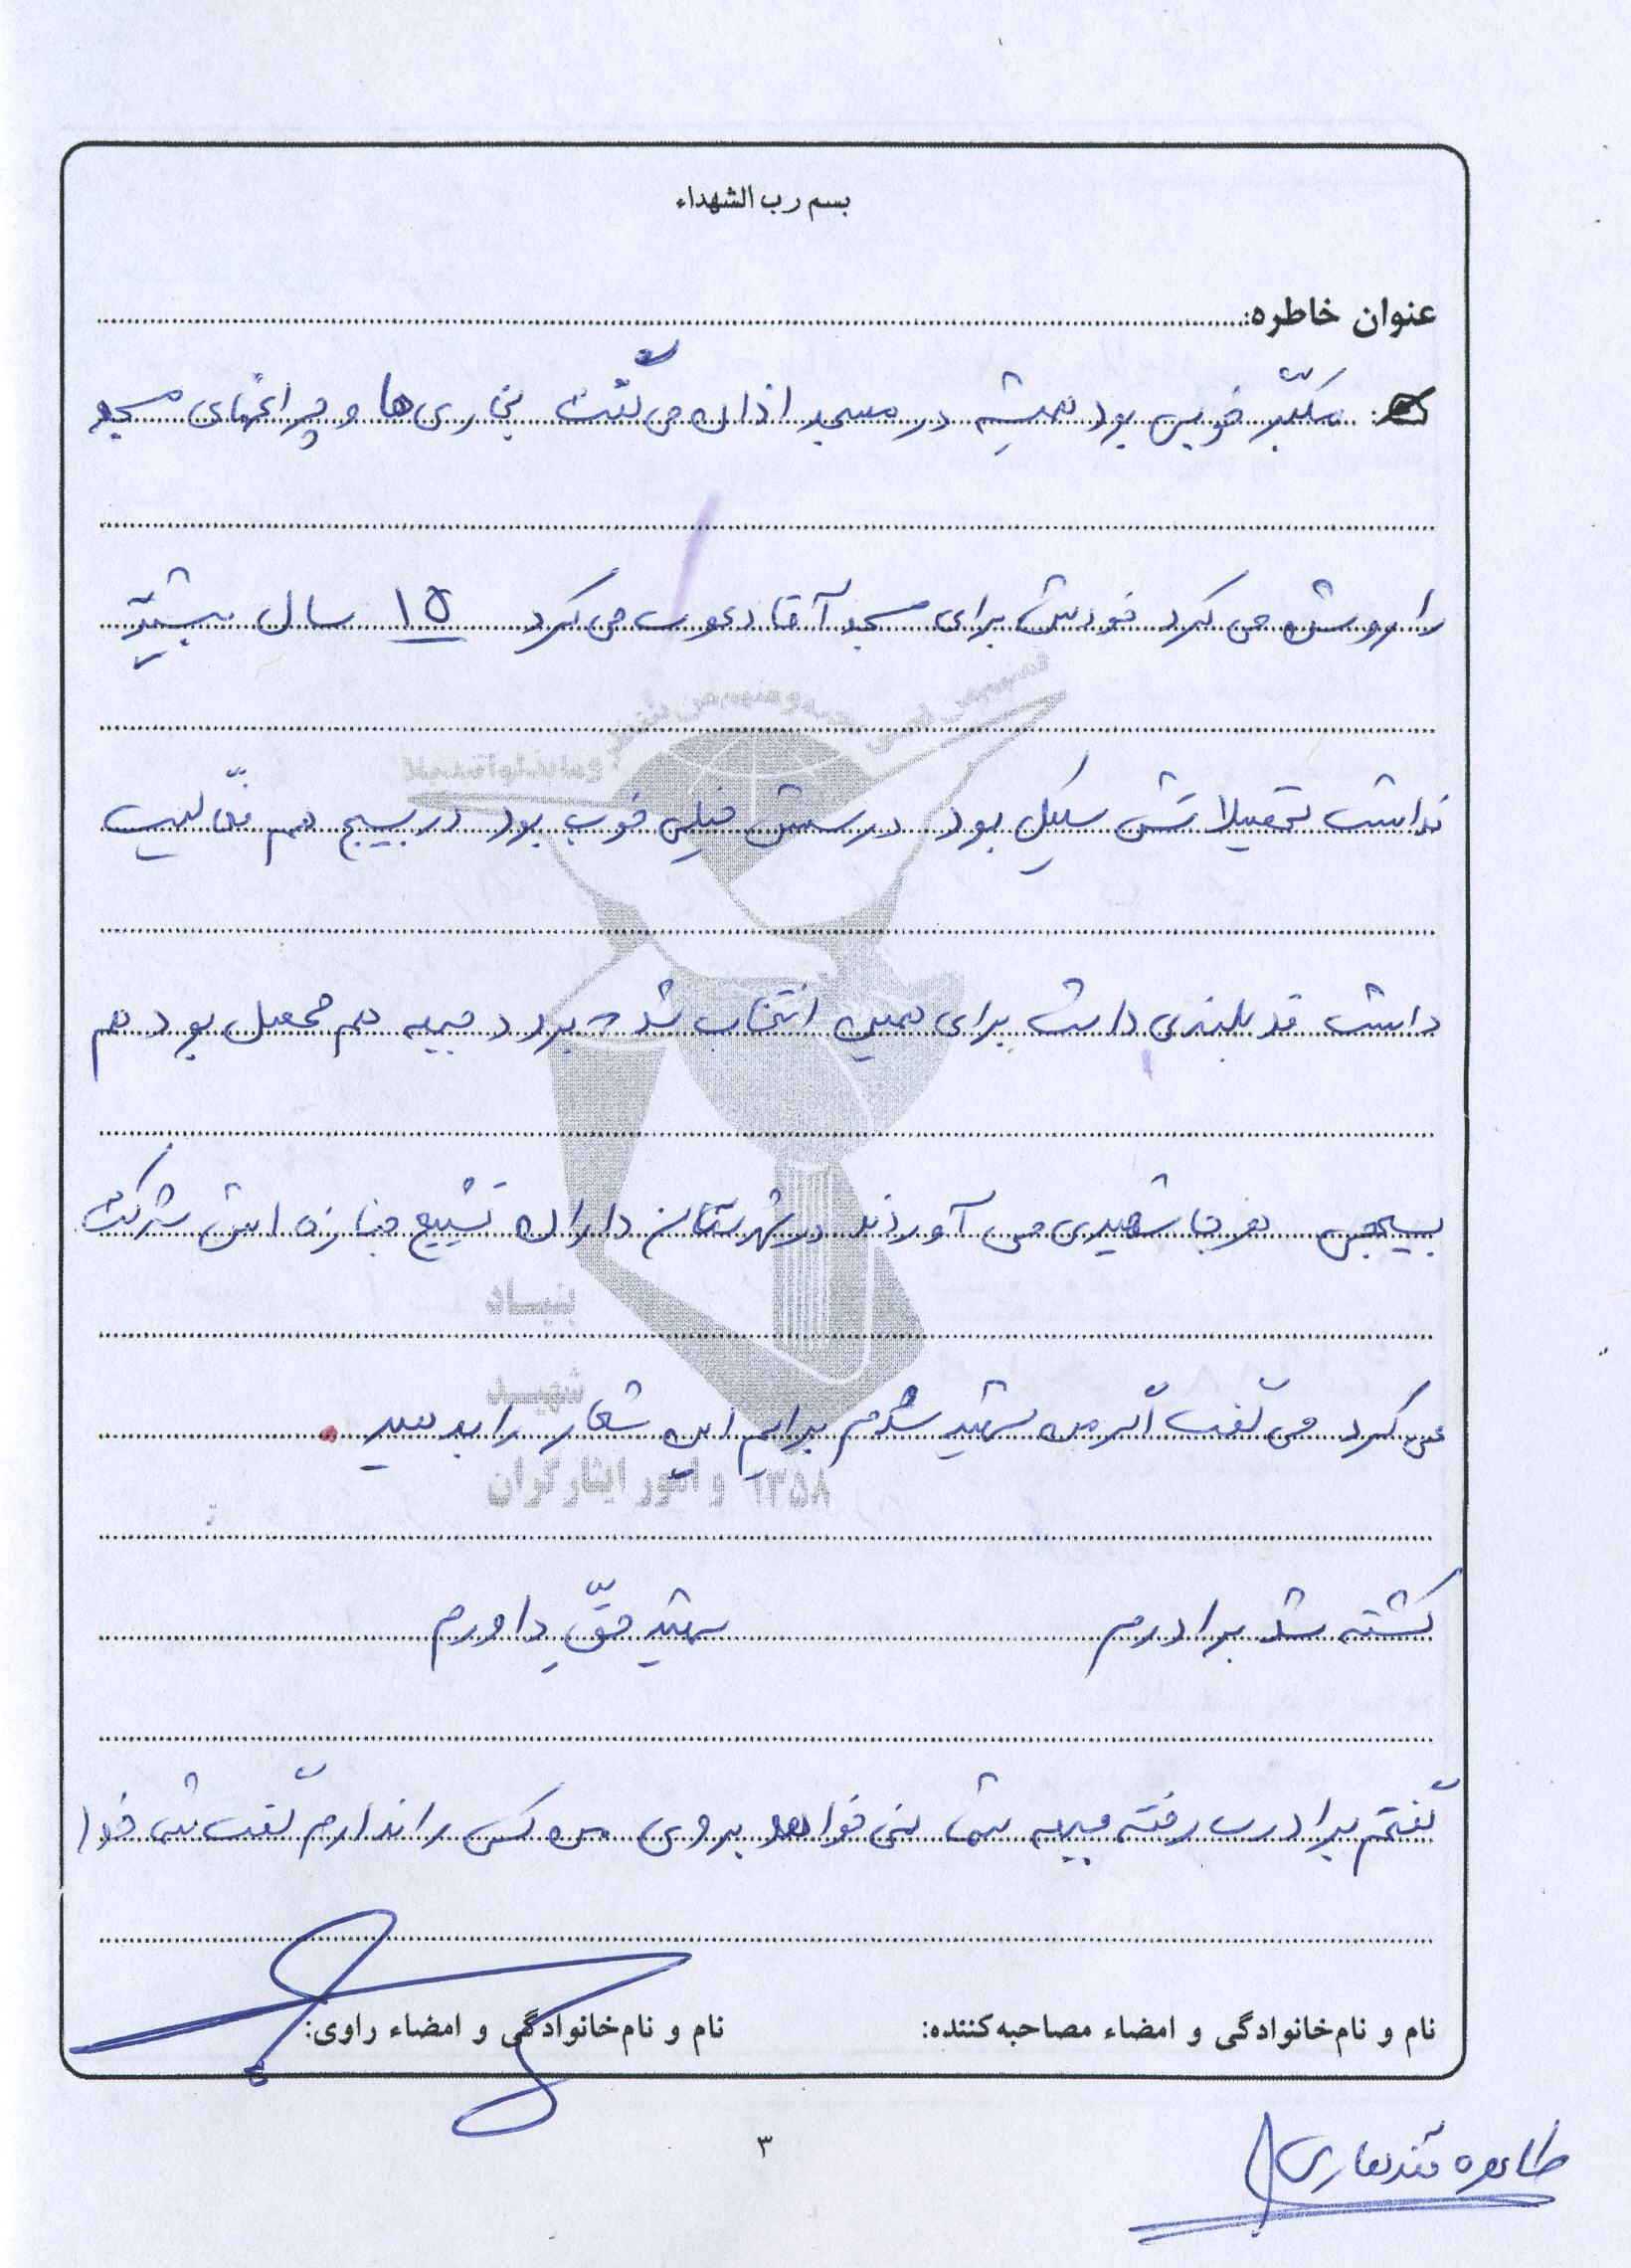 بسم رب الشهداء
عنوان خاطره:
مکبّر خوبی بود همیشه در مسجد اذان می گفت بخاری ها و چراغهای مسجد
را روشن می کرد خودش برای مسجد آقا دعوت می کرد ۱۵ سال بیشتر
نداشت تحصیلاتش سیکل بود درسش خیلی خوب بود در بسیج هم فعّالیت
داشت قد بلندی داشت برای همین انتخاب شد برود جبهه هم محصل بود هم
بسیجی هر جا شهیدی می آوردند در شهرستان داران تشییع جنازه اش شرکت
می کرد می گفت اگر من شهید شدم برایم این شعار را بدهید
کشته شد برادرم شهید حقّ یاورم
گفتم برادرت رفته جبهه شما نمی خواهد بروی من کسی را ندارم گفت شب خدا
بنیاد
شهید
و امور ایثارگران ۱۳۵۸
نام و نام‌خانوادگی و امضاء مصاحبه‌کننده: نام و نام‌خانوادگی و امضاء راوی:
۳
طاهره قندهاری